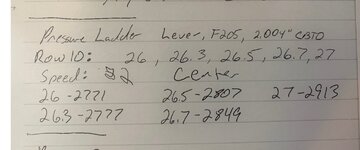 Pressure Ladder Lever, F205, 2.004" CBTO
Row ID: 26, 26.3, 26.5, 26.7, 27
Speed: 2 Center
26-2771 26.5-2807 27-2913
26.3-2777 26.7-2849